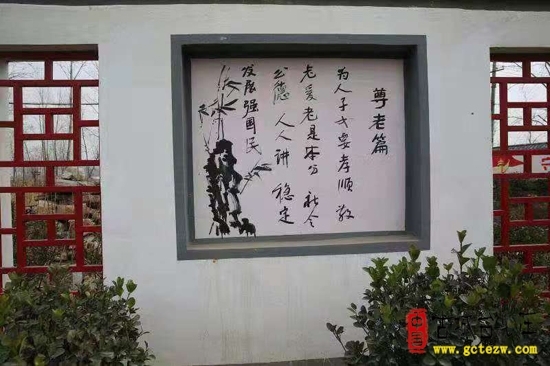 尊老篇
为人子女要孝顺 敬
老爱老是本分 社会
公德 人人讲 稳定
发展强国民
www.gctezw.com